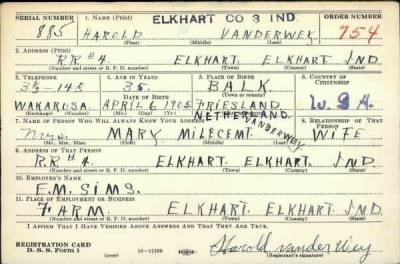 SERIAL NUMBER 1. NAME (Print) ELKHART CO 3 IND. ORDER NUMBER
885 HAROLD VANDERWEY 754
(First) (Middle) (Last)
2. ADDRESS (Print)
R.R #4. ELKHART. ELKHART. IND
(Number and street or R. F. D. number) (Town) (County) (State)
3. TELEPHONE 4. AGE IN YEARS 5. PLACE OF BIRTH 6. COUNTRY OF CITIZENSHIP
35. BALK
DATE OF BIRTH (Town or county)
WAKARUSA. APRIL 6 1905. FRIESLAND. U.S.A.
(Exchange) (Number) (Mo.) (Day) (Yr.) (State or country)
NETHERLAND
7. NAME OF PERSON WHO WILL ALWAYS KNOW YOUR ADDRESS VANDERWEY 8. RELATIONSHIP OF THAT PERSON
Mrs. MARY MILECENT. WIFE
(Mr., Mrs., Miss) (First) (Middle) (Last)
9. ADDRESS OF THAT PERSON
R.R #4. ELKHART. ELKHART. IND
(Number and street or R. F. D. number) (Town) (County) (State)
10. EMPLOYER'S NAME
E.M. SIMS.
11. PLACE OF EMPLOYMENT OR BUSINESS
FARM. ELKHART. ELKHART. IND
(Number and street or R. F. D. number) (Town) (County) (State)
I AFFIRM THAT I HAVE VERIFIED ABOVE ANSWERS AND THAT THEY ARE TRUE.
REGISTRATION CARD
D. S. S. Form 1 Harold vander Wey
(over) (Registrant's signature)